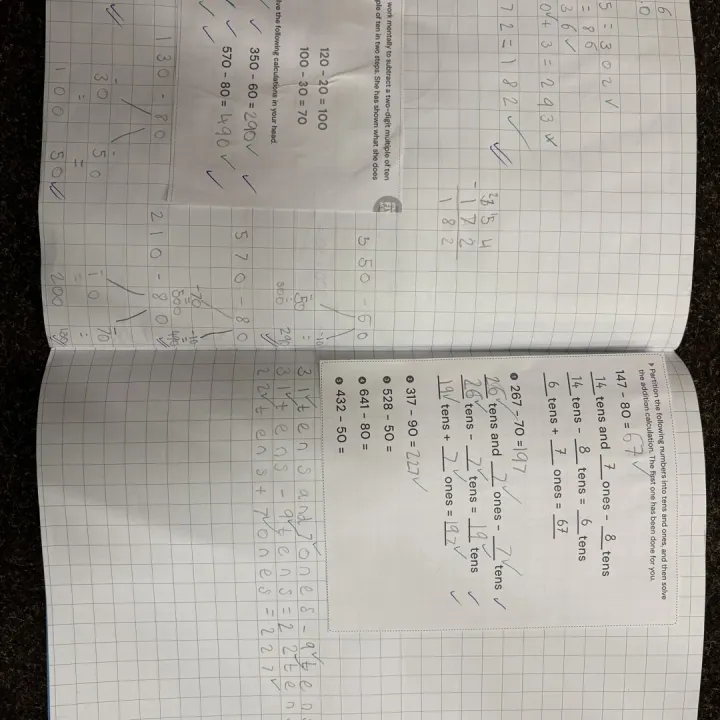 6
5 = 302 ✓
= 86
36 ✓
0 + 3 = 293 ×
72 = 182 ✓
354
- 172
182
work mentally to subtract a two-digit multiple of ten
ple of ten in two steps. She has shown what she does
120 – 20 = 100
100 – 30 = 70
ve the following calculations in your head.
350 – 60 = 290 ✓
570 – 80 = 490 ✓
130 - 80
30 50
100 50
550 - 60
50 -10
300 290
570 - 80
-70 -10
500 490
210 - 80
10 70
200
Partition the following numbers into tens and ones, and then solve
the addition calculation. The first one has been done for you.
147 – 80 = 67 ✓
14 tens and 7 ones – 8 tens
14 tens – 8 tens = 6 tens
6 tens + 7 ones = 67
267 – 70 = 197
26 tens and 7 ones – 7 tens ✓
26 tens – 7 tens = 19 tens ✓
19 tens + 7 ones = 197 ✓
317 – 90 = 227 ✓
528 – 50 =
641 – 80 =
432 – 50 =
31 tens and 7 ones - 9 tens
31 tens - 9 tens = 22 tens
22 tens + 7 ones = 227 ✓